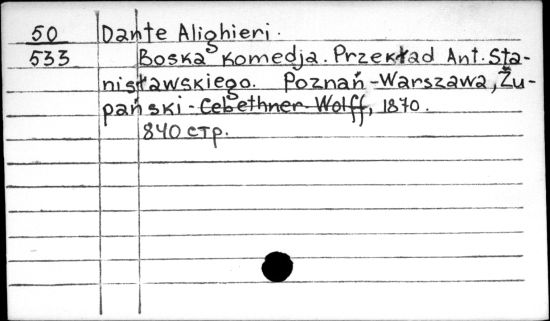 50 Dante Alighieri.
533 Boska Komedja. Przekład Ant. Sta-
nisławskiego. Poznań-Warszawa, Żu-
pański-Gebethner-Wolff, 1870.
840 стр.